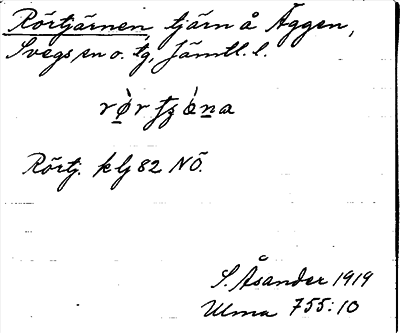 Rörtjärnen, tjärn å Äggen,
Svegs sn o. tg, Jämtl. l.
Rörtj. k lj 82 NÖ.
S. Åsander 1919
Ulma 755:10